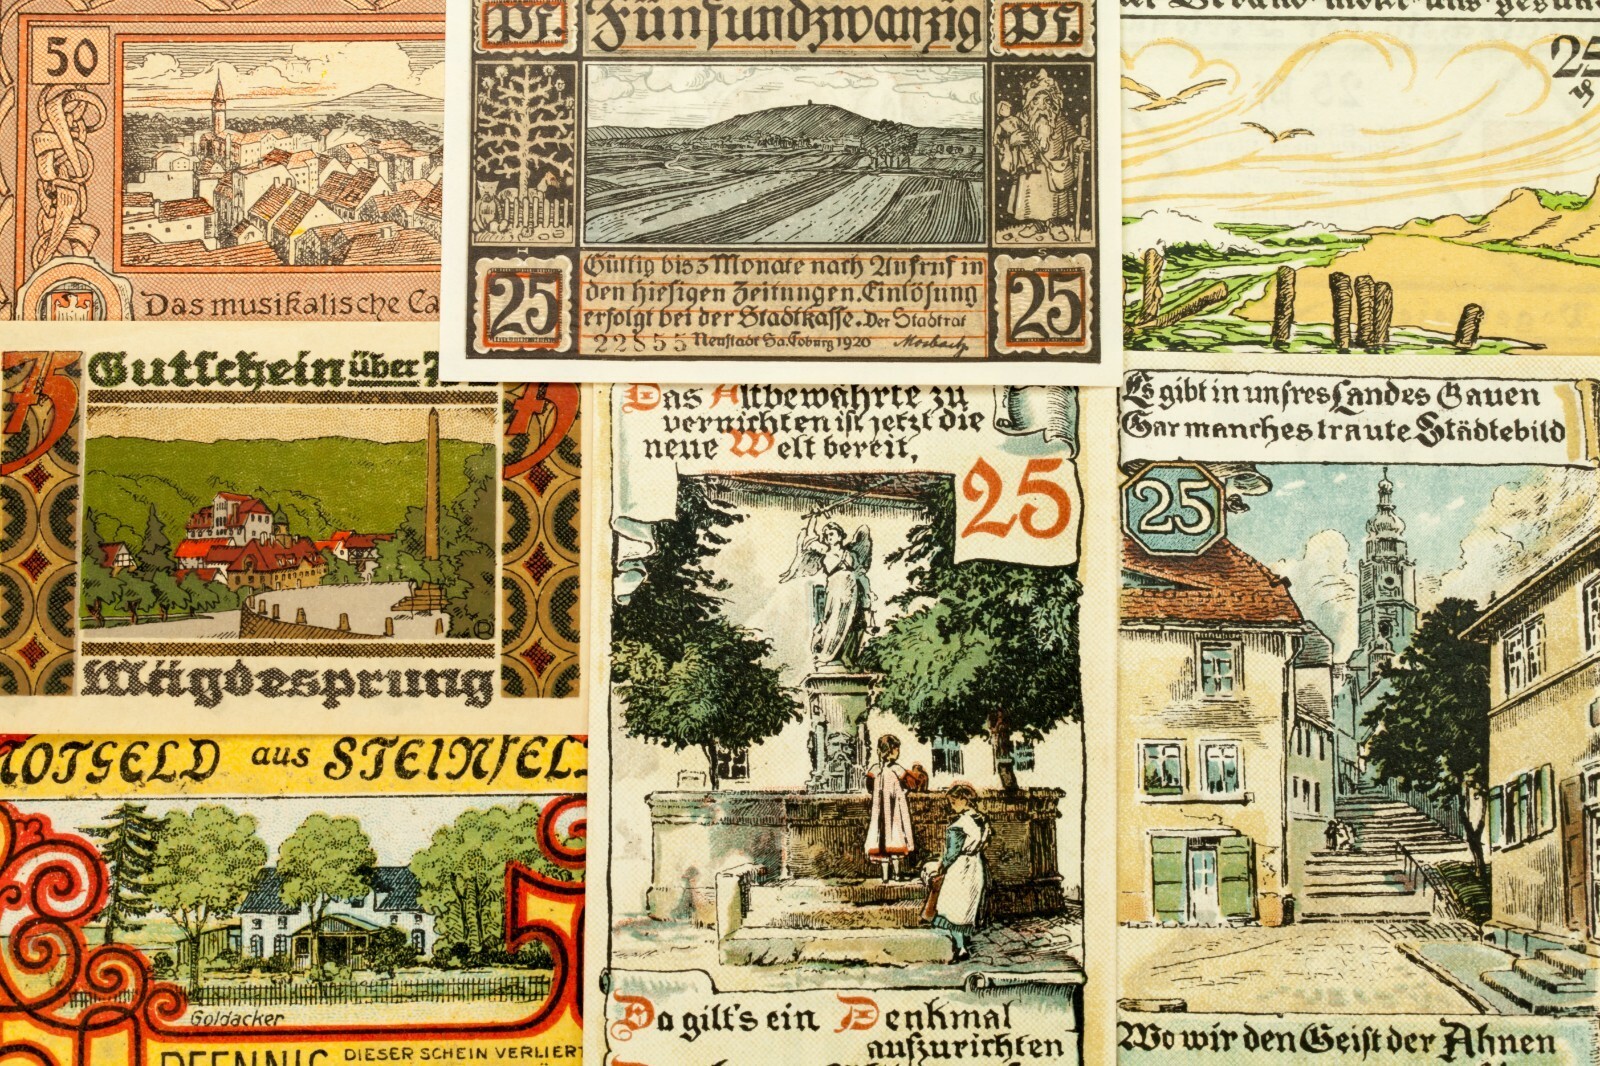 50
Das musikalische
Pf. Fünfundzwanzig Pf.
Gültig bis 3 Monate nach Aufruf in
den hiesigen Zeitungen. Einlösung
erfolgt bei der Stadtkasse. Der Stadtrat
22855 Neustadt Sa. Coburg 1920
25
25
25
75
Gutschein über
75
Mägdesprung
NOTGELD aus
Goldacker
PFENNIG DIESER SCHEIN VERLIERT
Das Altbewährte zu
vernichten ist jetzt die
neue Welt bereit,
25
Da gilt's ein Denkmal
aufzurichten
Es gibt in unsres Landes Gauen
Gar manches traute Städtebild
25
Wo wir den Geist der Ahnen